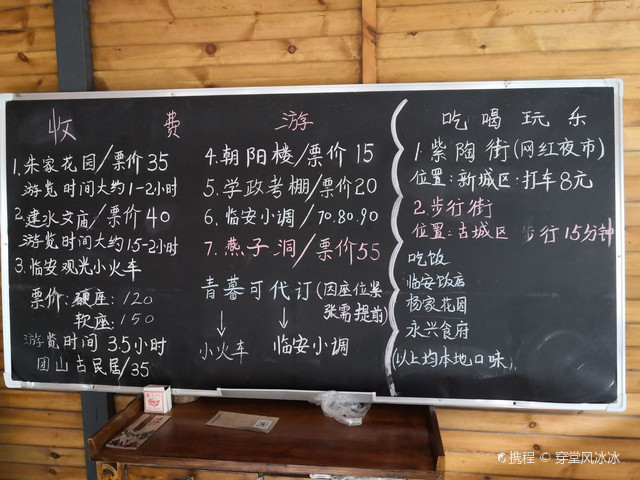 收费游
1.朱家花园/票价35
游览时间大约1-2小时
2.建水文庙/票价40
游览时间大约1.5-2小时
3.临安观光小火车
票价:硬座:120
软座:150
游览时间 3.5小时
团山古民居/35
4.朝阳楼/票价15
5.学政考棚/票价20
6.临安小调/70.80.90
7.燕子洞/票价55
可代订(因座位紧
张需提前)
小火车
临安小调
吃喝玩乐
1.紫陶街(网红夜市)
位置:新城区·打车8元
2.步行街
位置:古城区 步行15分钟
吃饭
临安饭店
杨家花园
永兴食府
(以上均本地口味)
携程 © 穿堂风冰冰